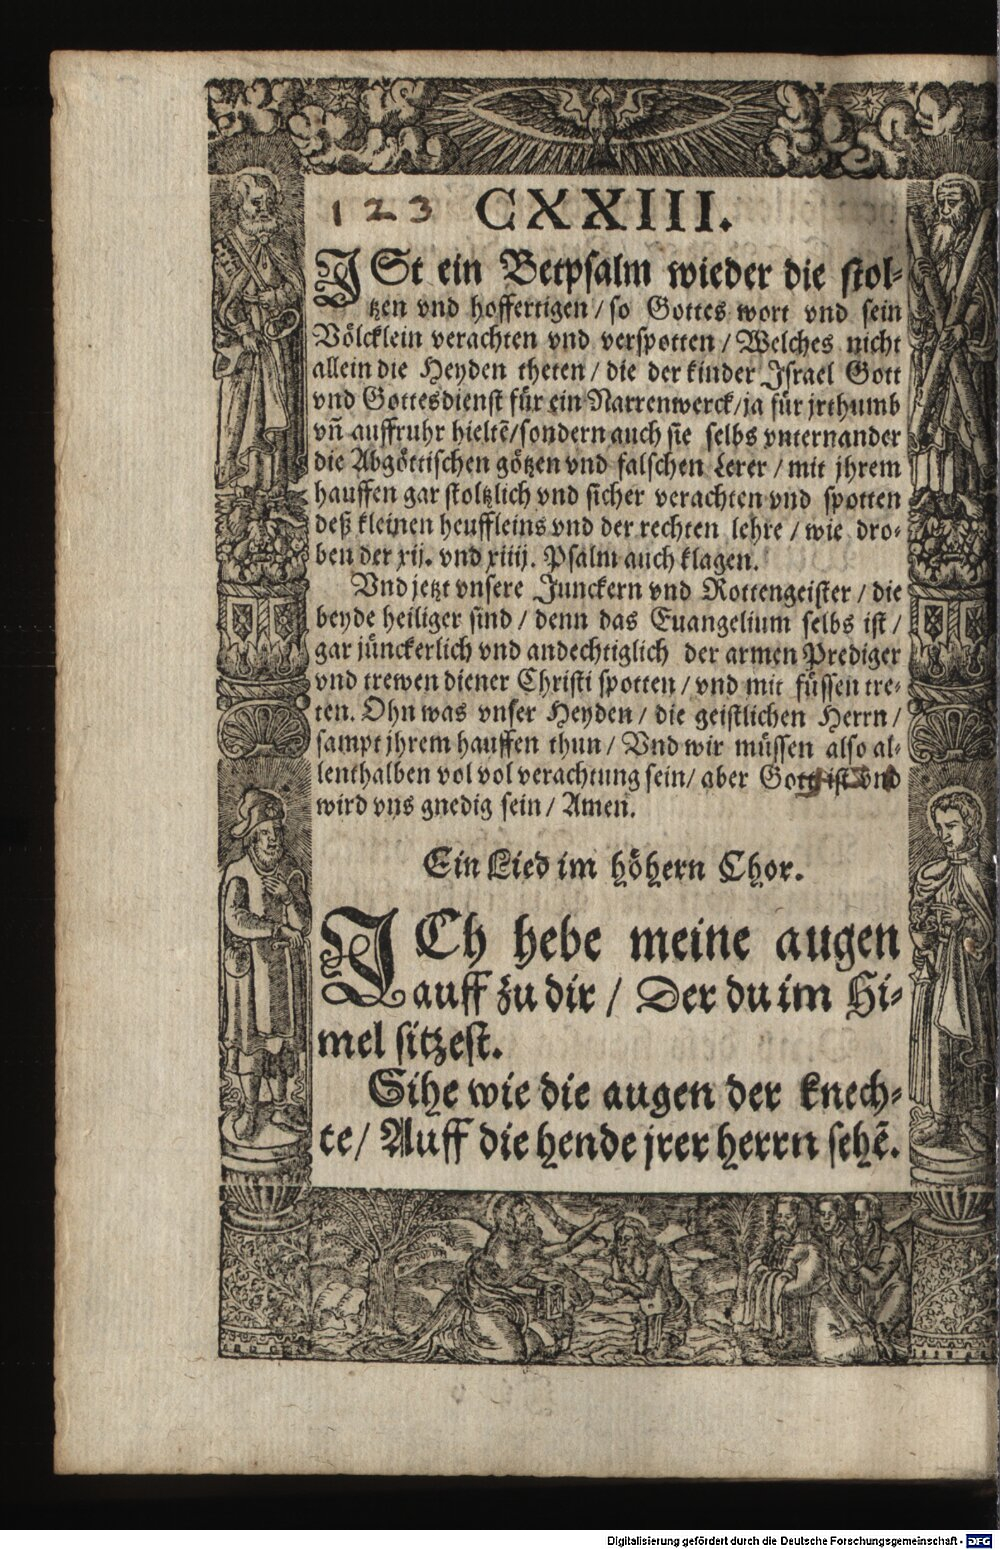 123 CXXIII.
ISt ein Betpsalm wieder die stol-
tzen vnd hoffertigen / so Gottes wort vnd sein
Völcklein verachten vnd verspotten / Welches nicht
allein die Heyden theten / die der kinder Israel Gott
vnd Gottesdienst für ein Narrenwerck / ja für jrthumb
vñ auffruhr hieltẽ / sondern auch sie selbs vnternander
die Abgöttischen götzen vnd falschen Lerer / mit jhrem
hauffen gar stoltzlich vnd sicher verachten vnd spotten
deß kleinen heuffleins vnd der rechten lehre / wie dro-
ben der xij. vnd xiiij. Psalm auch klagen.
Vnd jetzt vnsere Junckern vnd Rottengeister / die
beyde heiliger sind / denn das Euangelium selbs ist /
gar jünckerlich vnd andechtiglich der armen Prediger
vnd trewen diener Christi spotten / vnd mit füssen tre-
ten. Ohn was vnser Heyden / die geistlichen Herrn /
sampt jhrem hauffen thun / Vnd wir müssen also al-
lenthalben vol vol verachtung sein / aber Gott ist vnd
wird vns gnedig sein / Amen.
Ein Lied im höhern Chor.
ICh hebe meine augen
auff zu dir / Der du im Hi-
mel sitzest.
Sihe wie die augen der knech-
te / Auff die hende jrer herrn sehẽ.
Digitalisierung gefördert durch die Deutsche Forschungsgemeinschaft - DFG